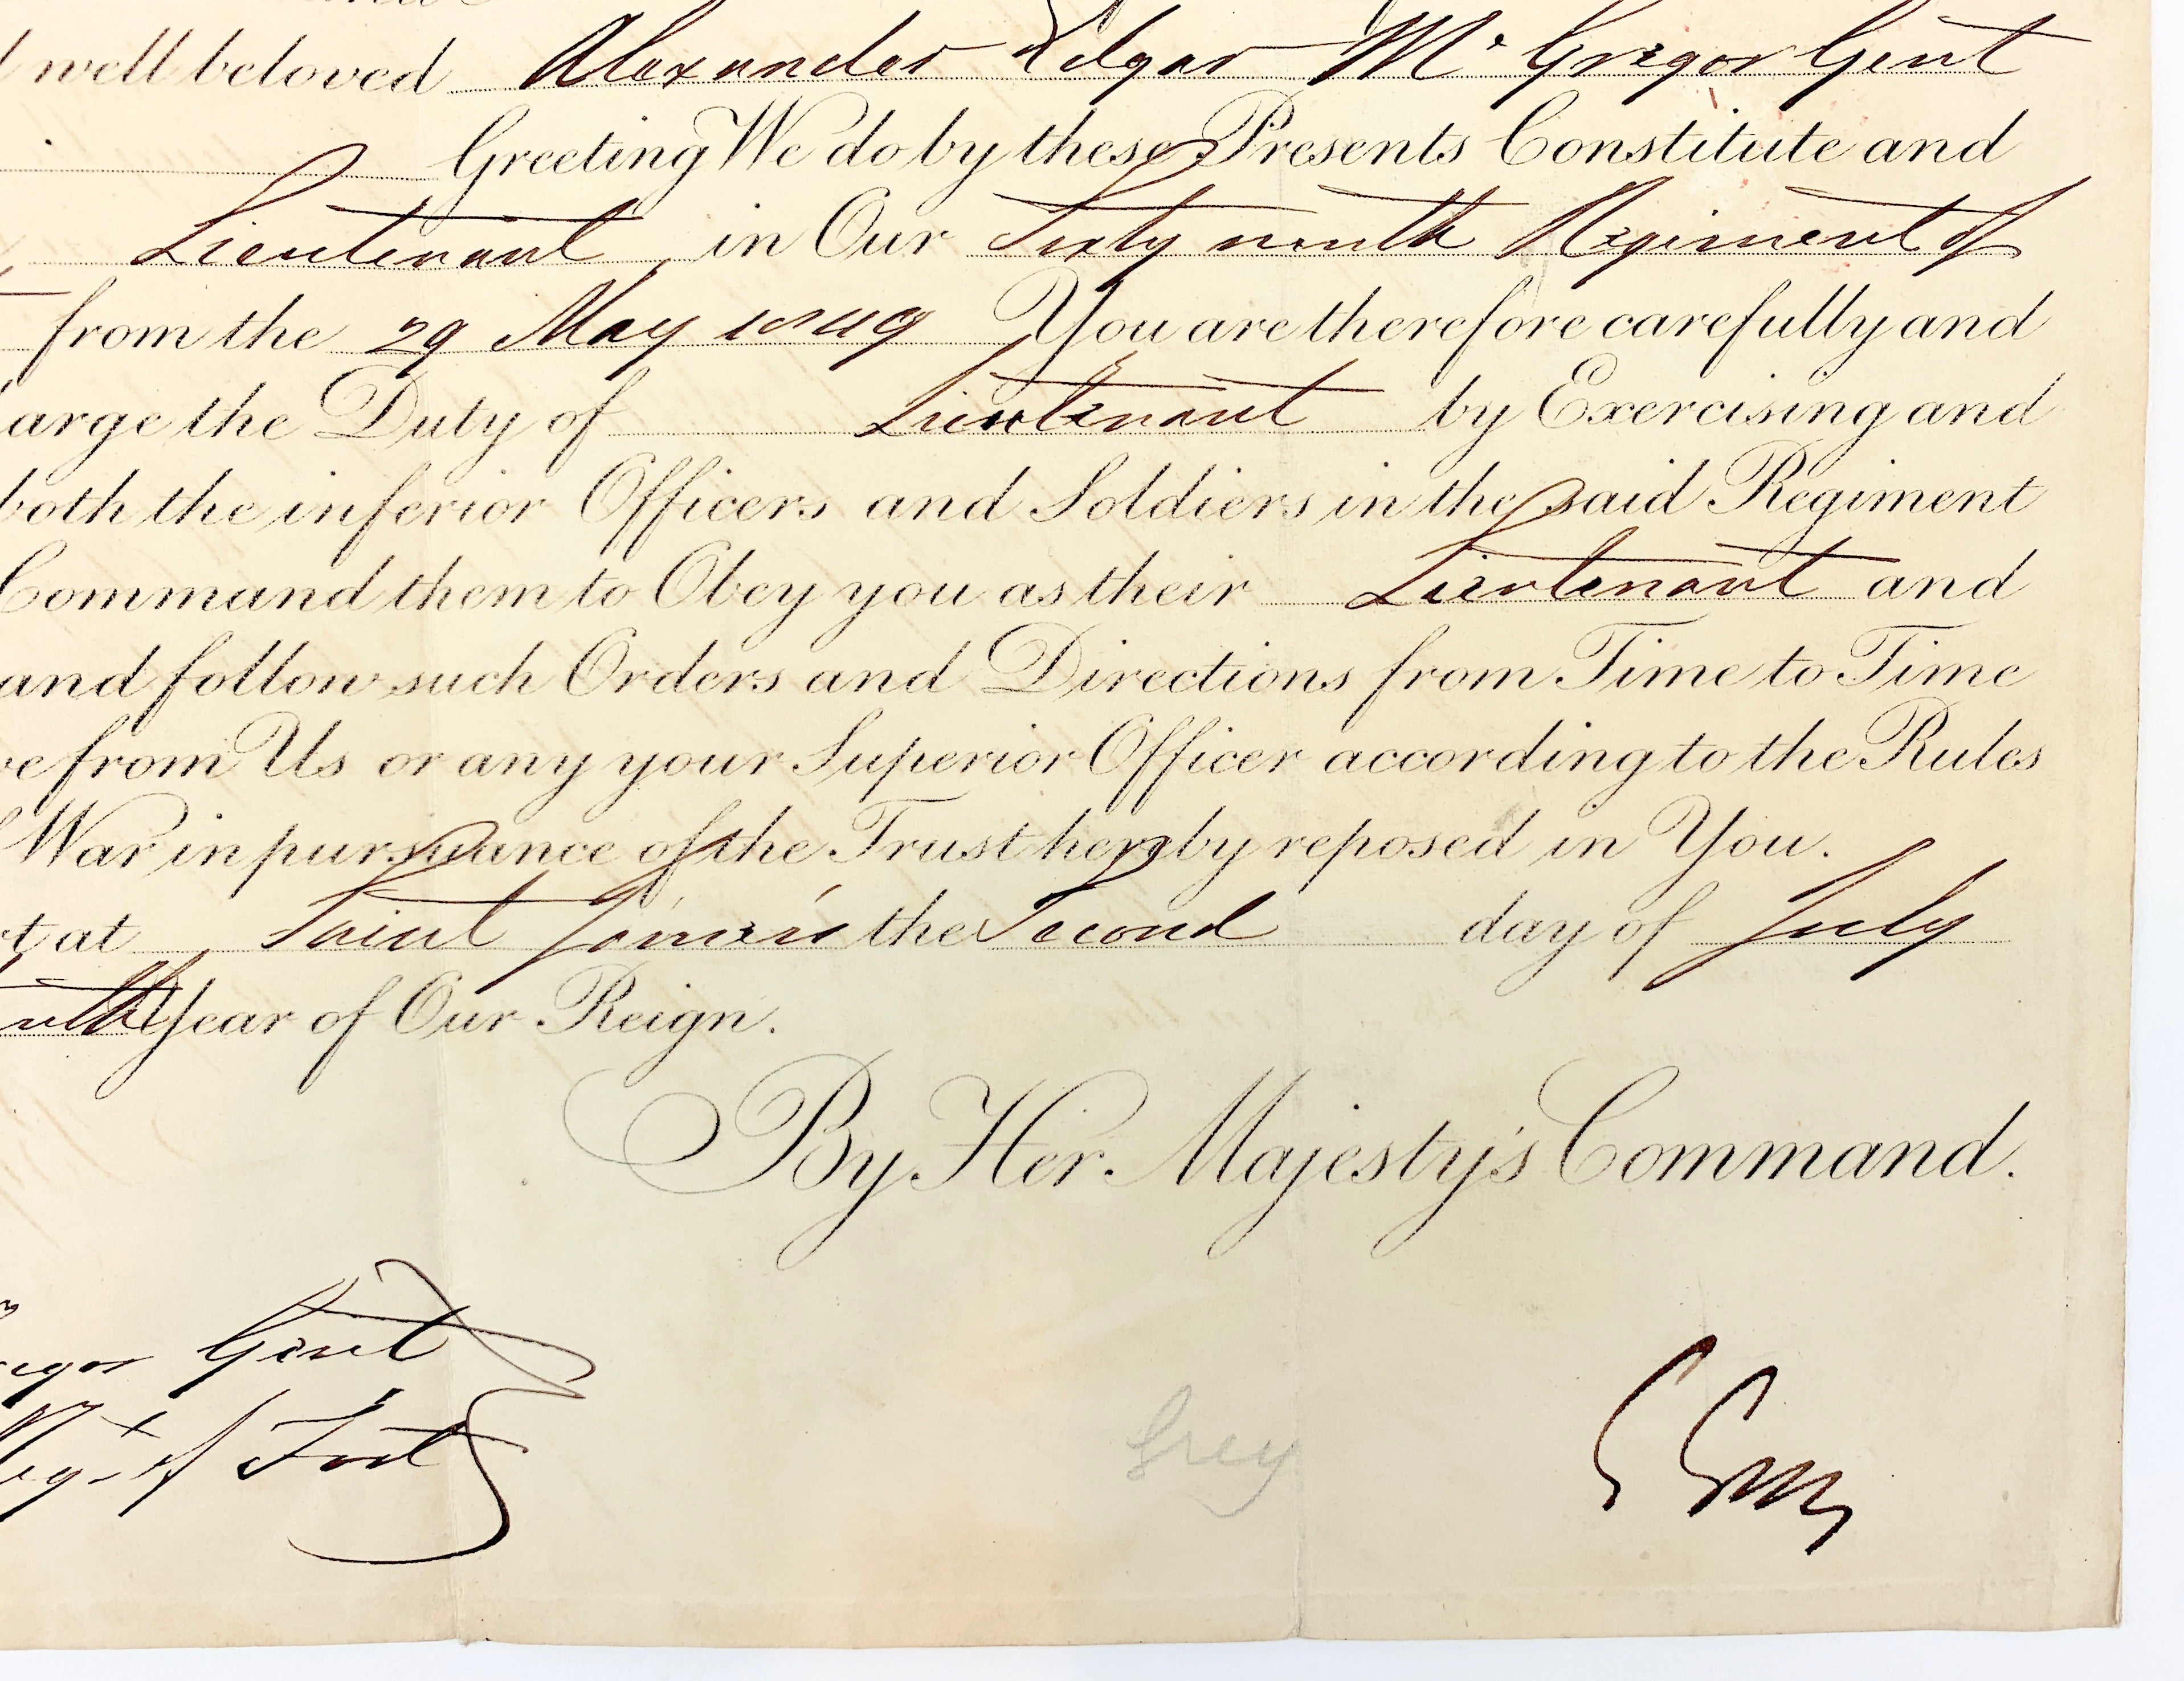 well beloved Alexander Edgar Mc Gregor Gent
Greeting We do by these Presents Constitute and
Lieutenant in Our Sixty ninth Regiment of
from the 29 May 1849 You are therefore carefully and
arge the Duty of Lieutenant by Exercising and
both the inferior Officers and Soldiers in the said Regiment
Command them to Obey you as their Lieutenant and
and follow such Orders and Directions from Time to Time
ve from Us or any your Superior Officer according to the Rules
War in pursuance of the Trust hereby reposed in You.
rt at Saint James's the Second day of July
Year of Our Reign.
By Her Majesty's Command.
egor Gent
Regt of Foot
Grey
G Grey